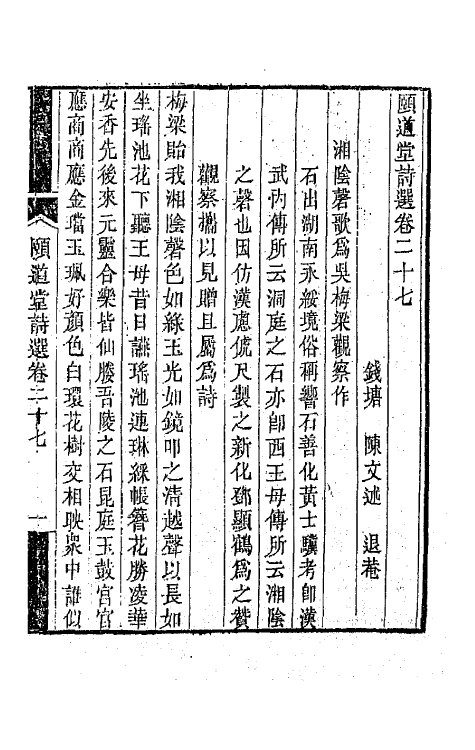 頤道堂詩選卷二十七
錢塘　陳文述　退菴
湘陰磬歌爲吳梅梁觀察作
石出湖南永綏境俗稱響石善化黃士驥考卽漢
武內傳所云洞庭之石亦卽西王母傳所云湘陰
之磬也因仿漢慮俿尺製之新化鄧顯鶴爲之贊
觀察攜以見贈且屬爲詩
梅梁貽我湘陰磬色如綠玉光如鏡叩之清越聲以長如
坐瑤池花下聽王母昔日讌瑤池連琳綵帳簪花勝凌華
安香先後來元靈合樂皆仙媵吾陵之石昆庭玉鼓宮宮
應商商應金璫玉珮好顏色白環花樹交相映衆中誰似
頤道堂詩選卷二十七
一